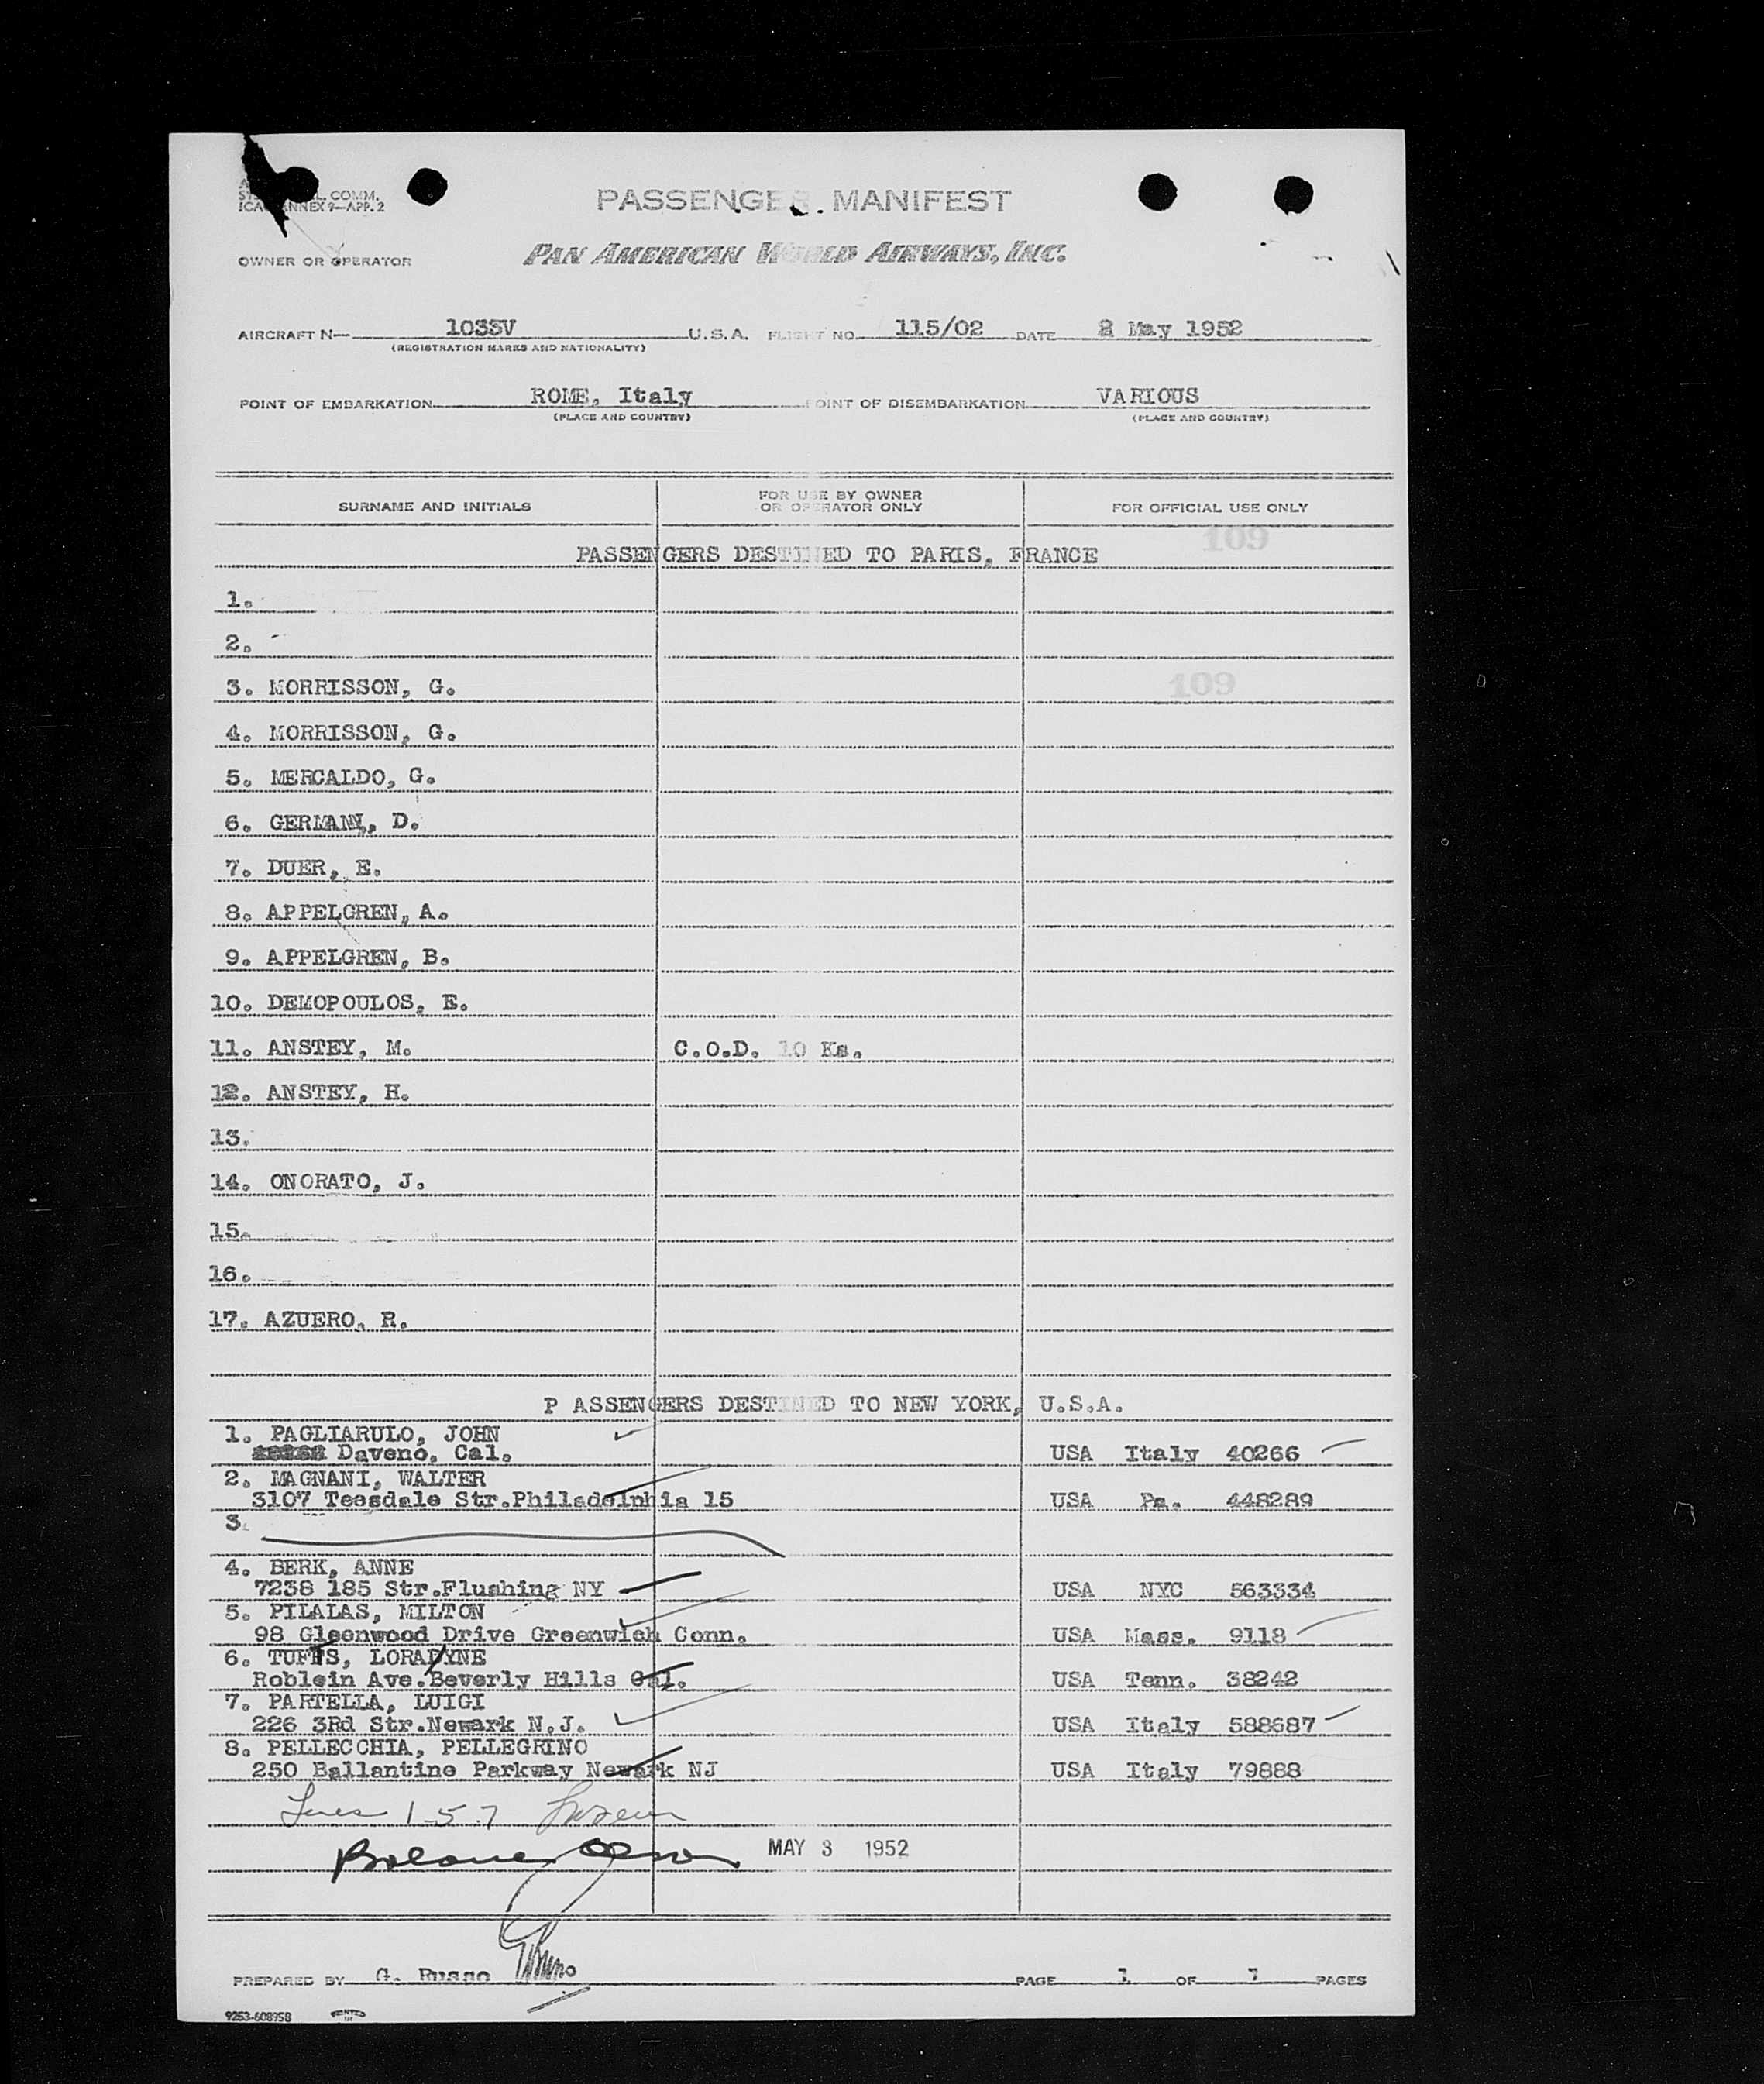 L. COMM.
ICAO ANNEX 9—APP. 2
PASSENGER MANIFEST
OWNER OR OPERATOR PAN AMERICAN WORLD AIRWAYS, INC.
AIRCRAFT N— 1033V U.S.A. FLIGHT NO. 115/02 DATE 2 May 1952
(REGISTRATION MARKS AND NATIONALITY)
POINT OF EMBARKATION ROME, Italy POINT OF DISEMBARKATION VARIOUS
(PLACE AND COUNTRY) (PLACE AND COUNTRY)
SURNAME AND INITIALS FOR USE BY OWNER OR OPERATOR ONLY FOR OFFICIAL USE ONLY
109
PASSENGERS DESTINED TO PARIS, FRANCE
1.
2.
3. MORRISSON, G. 109
4. MORRISSON, G.
5. MERCALDO, G.
6. GERMANN, D.
7. DUER, E.
8. APPELGREN, A.
9. APPELGREN, B.
10. DEMOPOULOS, E.
11. ANSTEY, M. C.O.D. 10 Ks.
12. ANSTEY, H.
13.
14. ONORATO, J.
15.
16.
17. AZUERO, R.
P ASSENGERS DESTINED TO NEW YORK, U.S.A.
1. PAGLIARULO, JOHN
Daveno, Cal. USA Italy 40266
2. MAGNANI, WALTER
3107 Teesdale Str.Philadelphia 15 USA Pa. 448289
3.
4. BERK, ANNE
7238 185 Str.Flushing NY USA NYC 563334
5. PILALAS, MILTON
98 Gleenwood Drive Greenwich Conn. USA Mass. 9118
6. TUFTS, LORADYNE
Roblein Ave.Beverly Hills Cal. USA Tenn. 38242
7. PARTELLA, LUIGI
226 3Rd Str.Newark N.J. USA Italy 588687
8. PELLECCHIA, PELLEGRINO
250 Ballantine Parkway Newark NJ USA Italy 79888
Lines 1-5-7
MAY 3 1952
PREPARED BY G. Russo PAGE 1 OF 1 PAGES
9253-608958